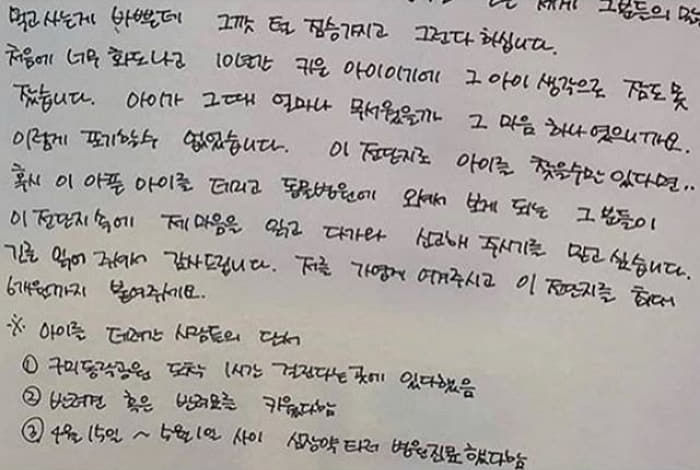 세게 그분들의 말
먹고사는게 바쁠텐데 그깟 털 짐승가지고 그런다 하십니다.
처음에 너무 화도나고 10여년간 키운 아이이기에 그 아이 생각으로 잠도 못
잤습니다. 아이가 그때 얼마나 무서웠을까 그 마음 하나였으니까요.
이렇게 포기할수 없었습니다. 이 전단지로 아이를 찾을수만 있다면..
혹시 이 아픈 아이를 데리고 동물병원에 와서 보게 되는 그 분들이
이 전단지속에 제마음을 읽고 다가와 신고해 주시기를 믿고 싶습니다.
긴글 읽어 주셔서 감사드립니다. 저를 가엽게 여겨주시고 이 전단지를 최대
6개월까지 붙여주세요.
※ 아이를 데려간 사람들의 단서
① 구미동각공원 도착 1시간 걸린다는곳에 있다했음
② 반려견 혹은 반려묘를 키운다함
③ 4월 15일 ~ 5월 1일 사이 심장약 타러 병원진료 했다함